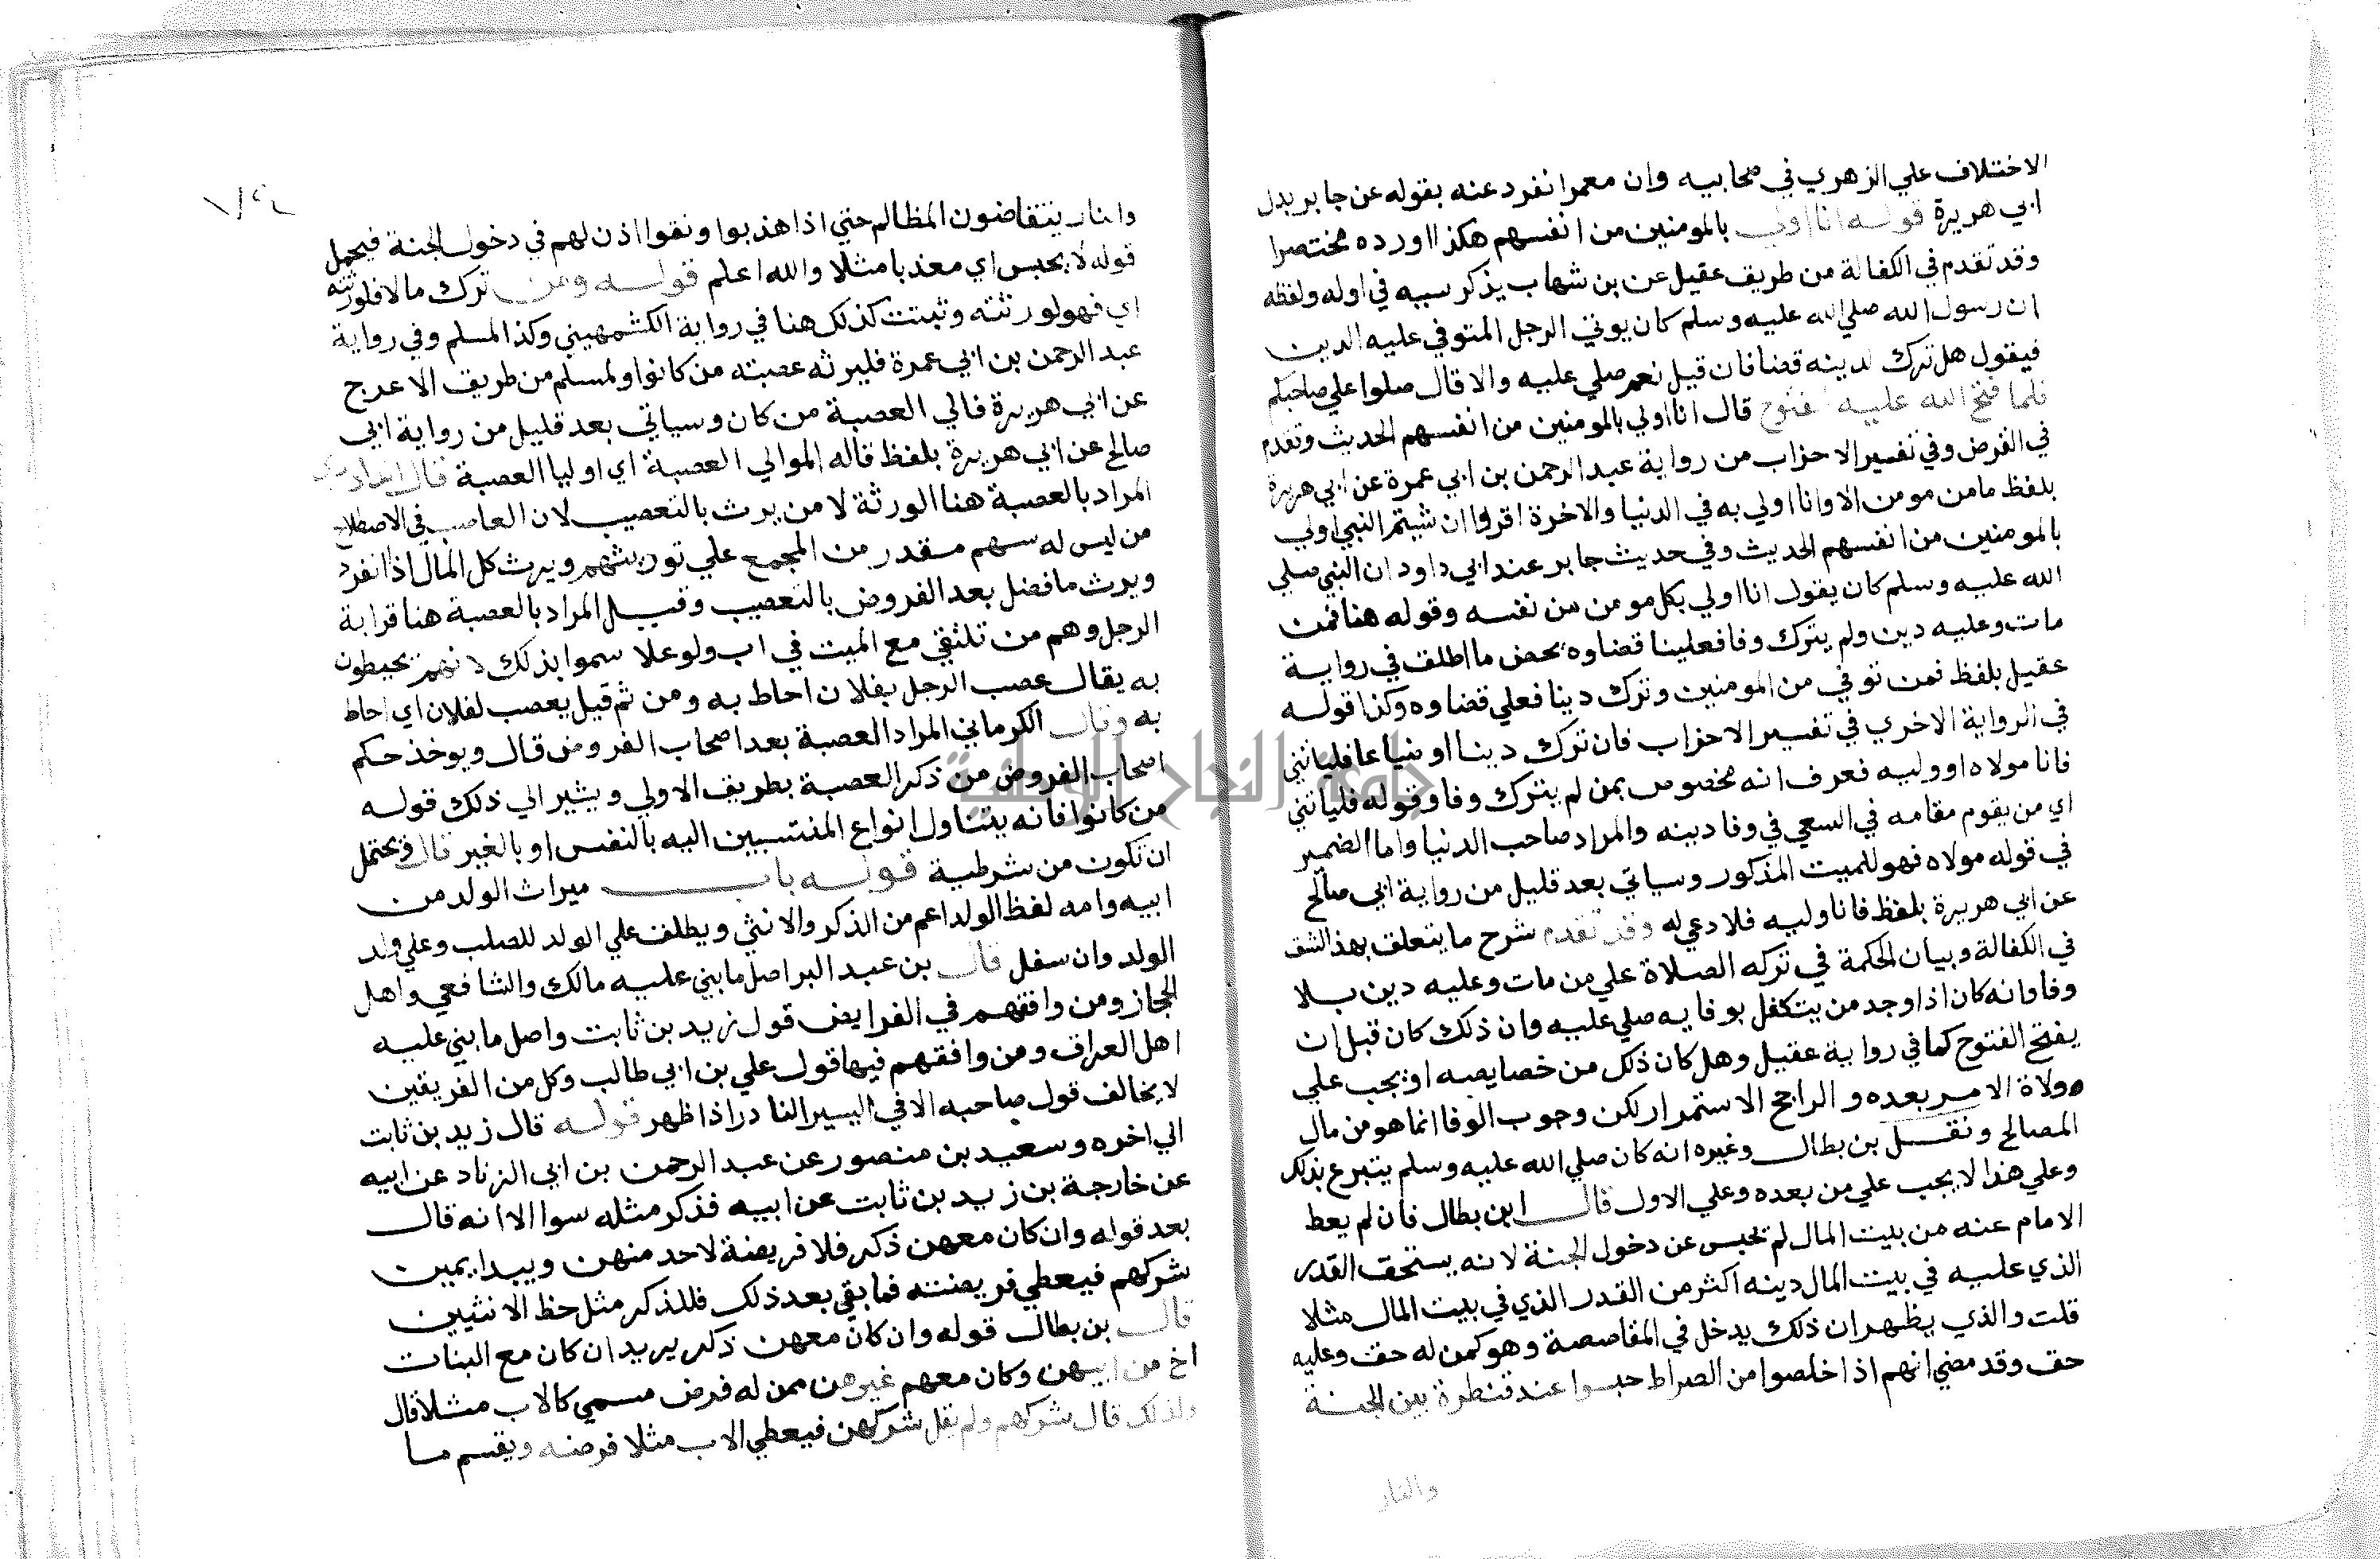 الاختلاف علي الزهري في صحابيه وان معمرا نفرد عنه بقوله عن جابر بدل
ابي هريرة قوله انا اولي بالمومنين من انفسهم هكذا اورده مختصرا
وقد تقدم في الكفالة من طريق عقيل عن بن شهاب يذكر سببه في اوله ولفظه
ان رسول الله صلي الله عليه وسلم كان يوتي الرجل المتوفي عليه الدين
فيقول هل ترك لدينه قضا فان قيل نعم صلي عليه والا قال صلوا علي صاحبكم
فلما فتح الله عليه الفتوح قال انا اولي بالمومنين من انفسهم الحديث وتقدم
في القرض وفي تفسير الاحزاب من رواية عبد الرحمن بن ابي عمرة عن ابي هريرة
بلفظ مامن مومن الا وانا اولي به في الدنيا والاخرة اقروا ان شيتم النبي اولي
بالمومنين من انفسهم الحديث وفي حديث جابر عند ابي داود ان النبي صلي
الله عليه وسلم كان يقول انا اولي بكل مومن من نفسه وقوله هنا فمن
مات وعليه دين ولم يترك وفا فعلينا قضاوه يخص ما اطلق في رواية
عقيل بلفظ فمن توفي من المومنين وترك دينا فعلي قضاوه وكذا قوله
في الرواية الاخري في تفسير الاحزاب فان ترك دينا او ضياعا فلياتني
فانا مولاه او وليه فعرف انه مخصوص بمن لم يترك وفا وقوله فلياتني
اي من يقوم مقامه في السعي في وفا دينه والمراد صاحب الدنيا واما الضمير
في قوله مولاه فهو للميت المذكور وسياتي بعد قليل من رواية ابي صالح
عن ابي هريرة بلفظ فانا وليه فلادعي له وقد تقدم شرح ما يتعلق بهذا الشق
في الكفالة وبيان الحكمة في تركه الصلاة علي من مات وعليه دين بلا
وفا وانه كان اذا وجد من يتكفل بوفايه صلي عليه وان ذلك كان قبل ان
يفتح الفتوح كما في رواية عقيل وهل كان ذلك من خصايصه او يجب علي
ولاة الامر بعده والراجح الاستمرار لكن وجوب الوفا انما هو من مال
المصالح ونقل بن بطال وغيره انه كان صلي الله عليه وسلم يتبرع بذلك
وعلي هذا لا يجب علي من بعده وعلي الاول قال ابن بطال فان لم يعط
الامام عنه من بيت المال لم يحبس عن دخول الجنة لانه يستحق القدر
الذي عليه في بيت المال دينه اكثر من القدر الذي في بيت المال مثلا
قلت والذي يظهر ان ذلك يدخل في المقاصصة وهو كمن له حق وعليه
حق وقد مضي انهم اذا خلصوا من الصراط حبسوا عند قنطرة بين الجنة
والنار
وانار يتقاضون المظالم حتي اذا هذبوا ونقوا اذن لهم في دخول الجنة فيحمل
قوله لا يحبس اي معذبا مثلا والله اعلم قوله ومن ترك مالا فلورثته
اي فهو لورثته وثبتت كذلك هنا في رواية الكشميهني وكذا لمسلم وفي رواية
عبد الرحمن بن ابي عمرة فليرثه عصبته من كانوا ولمسلم من طريق الاعرج
عن ابي هريرة فالي العصبة من كان وسياتي بعد قليل من رواية ابي
صالح عن ابي هريرة بلفظ فاله الموالي العصبة اي اوليا العصبة قال
المراد بالعصبة هنا الورثة لا من يرث بالتعصيب لان العاصب في الاصطلاح
من ليس له سهم مقدر من المجمع علي توريثهم ويرث كل المال اذا انفرد
ويرث ما فضل بعد الفروض بالتعصيب وقيل المراد بالعصبة هنا قرابة
الرجل وهم من تلتقي مع الميت في اب ولو علا سموا بذلك لانهم يحيطون
به يقال عصب الرجل بفلان احاط به ومن ثم قيل يعصب لفلان اي احاط
به وقال الكرماني المراد العصبة بعد اصحاب الفروض قال ويوخذ حكم
اصحاب الفروض من ذكر العصبة بطريق الاولي ويشير الي ذلك قوله
من كانوا فانه يتناول انواع المنتسبين اليه بالنفس او بالغير قال ويحتمل
ان تكون من شرطية قوله باب ميراث الولد من
ابيه وامه لفظ الولد اعم من الذكر والانثي ويطلق علي الولد للصلب وعلي ولد
الولد وان سفل قال بن عبد البر اصل ما بني عليه مالك والشافعي واهل
الحجاز ومن وافقهم في الفرايض قول زيد بن ثابت واصل ما بني عليه
اهل العراق ومن وافقهم فيها قول علي بن ابي طالب وكل من الفريقين
لا يخالف قول صاحبه الا في اليسير النادر اذا ظهر قوله قال زيد بن ثابت
الي اخره وسعيد بن منصور عن عبد الرحمن بن ابي الزناد عن ابيه
عن خارجة بن زيد بن ثابت عن ابيه فذكر مثله سوا الا انه قال
بعد قوله وان كان معهن ذكر فلا فريضة لاحد منهن ويبدا يمين
شركهم فيعطي فريضته فما بقي بعد ذلك فللذكر مثل حظ الانثيين
قال بن بطال قوله وان كان معهن ذكر يريد ان كان مع البنات
اخ من ابيهن وكان معهم غيرهن ممن له فرض مسمي كالاب مثلا قال
ولذلك قال شركهم ولم يقل شركهن فيعطي الاب مثلا فرضه ويقسم ما
جامعة النجاح الوطنية